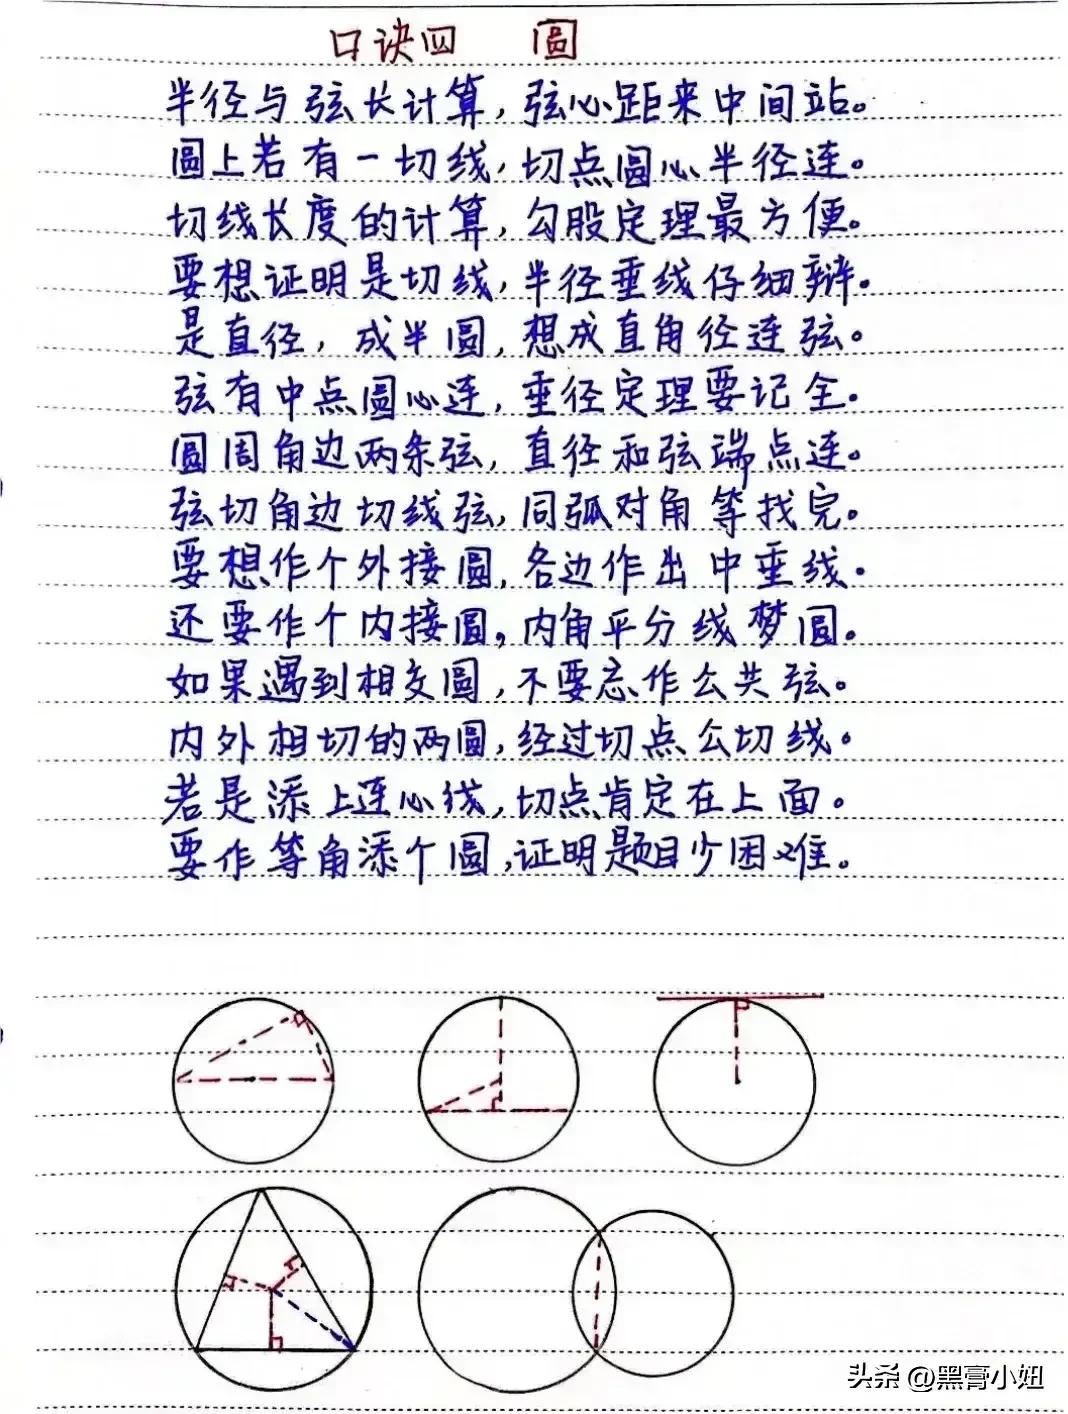 口诀四 圆
半径与弦长计算,弦心距来中间站。
圆上若有一切线,切点圆心半径连。
切线长度的计算,勾股定理最方便。
要想证明是切线,半径垂线仔细辩。
是直径,成半圆,想成直角径连弦。
弦有中点圆心连,垂径定理要记全。
圆周角边两条弦,直径和弦端点连。
弦切角边切线弦,同弧对角等找完。
要想作个外接圆,各边作出中垂线。
还要作个内接圆,内角平分线梦圆。
如果遇到相交圆,不要忘作公共弦。
内外相切的两圆,经过切点公切线。
若是添上连心线,切点肯定在上面。
要作等角添个圆,证明题目少困难。
头条 @黑膏小妞